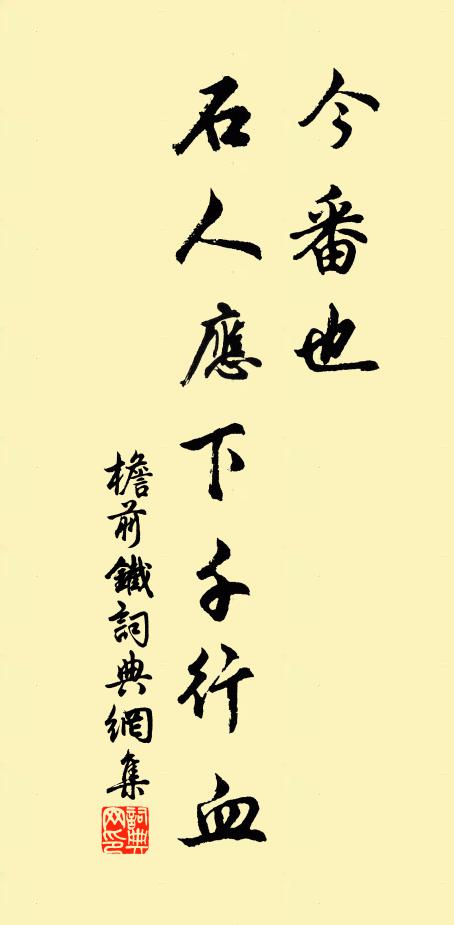 今番也
石人應下千行血
檐前鐵詞典網集
詞典网印